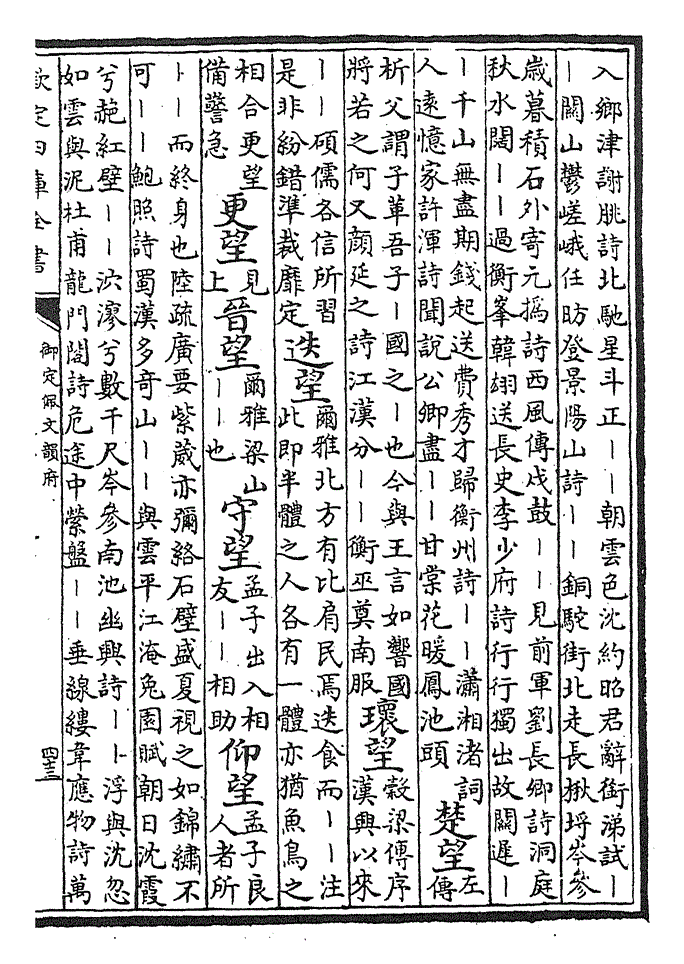 入鄉津謝朓詩北馳星斗正｜｜朝雲色沈約昭君辭銜涕試｜
｜關山鬱嵯峨任昉登景陽山詩｜｜銅駝街北走長楸埒岑參
歲暮積石外寄元撝詩西風傳戍鼓｜｜見前軍劉長卿詩洞庭
秋水闊｜｜過衡峯韓翃送長史李少府詩行行獨出故關遲｜
｜千山無盡期錢起送費秀才歸衡州詩｜｜瀟湘渚詞
人遠憶家許渾詩聞說公卿盡｜｜甘棠花暖鳳池頭
楚望
左
傳
析父謂子革吾子｜國之｜也今與王言如響國
將若之何又顏延之詩江漢分｜｜衡巫奠南服
瓌望
榖梁傳序
漢興以來
｜｜碩儒各信所習
是非紛錯準裁靡定
迭望
爾雅北方有比肩民焉迭食而｜｜注
此即半體之人各有一體亦猶魚鳥之
相合更望
備警急
更望
見
上
晉望
爾雅梁山
｜｜也
守望
孟子出入相
友｜｜相助
仰望
孟子良
人者所
｜｜而終身也陸疏廣要紫葳亦彌絡石壁盛夏視之如錦繡不
可｜｜鮑照詩蜀漢多奇山｜｜與雲平江淹兔園賦朝日沈霞
兮赩紅壁｜｜泬寥兮數千尺岑參南池幽興詩｜｜浮與沈忽
如雲與泥杜甫龍門閣詩危途中縈盤｜｜垂線縷韋應物詩萬
欽定四庫全書
御定佩文韻府
四十三